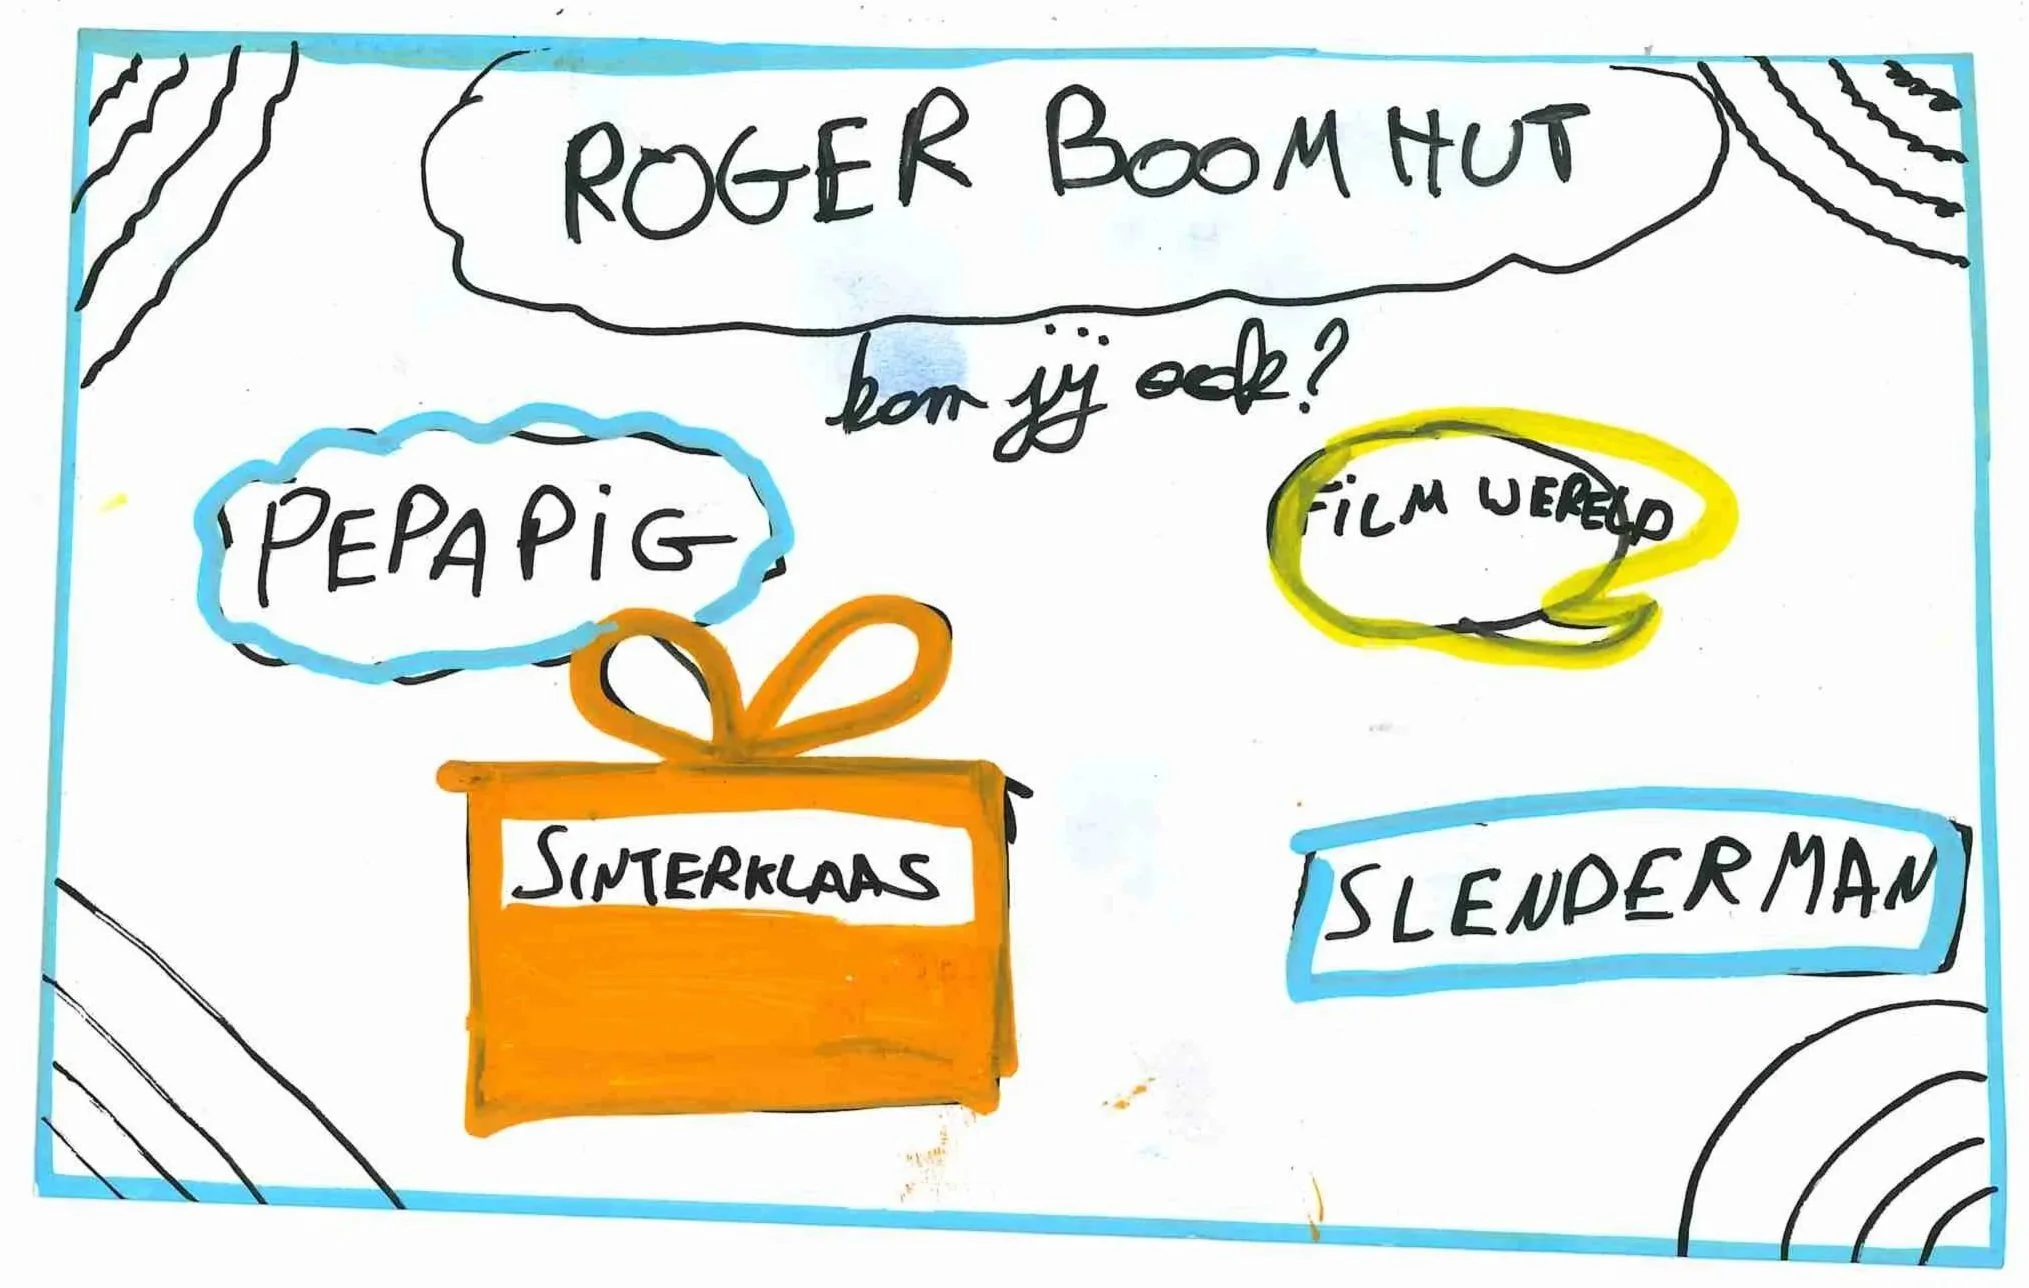 ROGER BOOMHUT
kom jij ook?
PEPA PiG
FiLM WERELD
SINTERKLAAS
SLENDERMAN